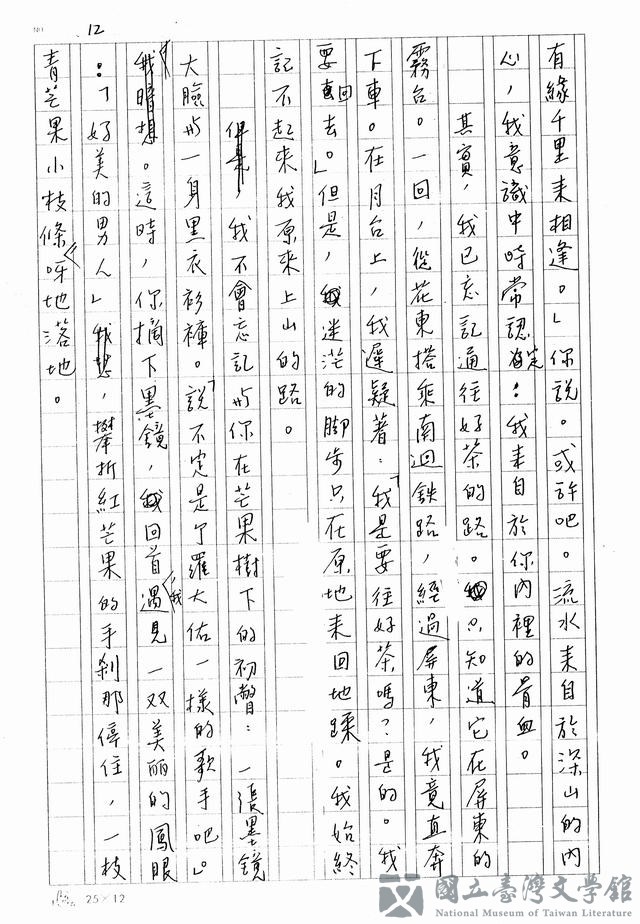 12
有緣千里來相逢。」你說。或許吧。流水來自於深山的內
心，我意識中時常認定：我來自於你內裡的骨血。
其實，我已忘記通往好茶的路。只知道它在屏東的
霧台。一回，從花東搭乘南迴鐵路，經過屏東，我竟直奔
下車。在月台上，我遲疑著：「我是要往好茶嗎？是的。我
要回去。」但是，迷茫的腳步只在原地來回地蹂。我始終
記不起來我原來上山的路。
但是，我不會忘記与你在芒果樹下的初瞥：一張墨鏡
大臉与一身黑衣衫褲。「說不定是了羅大佑一樣的歌手吧。」
我暗想。這時，你摘下墨鏡，我回首，我遇見一双美丽的鳳眼
：「好美的男人」我想，攀折紅芒果的手剎那停住，一枝
青芒果小枝條呀地落地。
25×12
國立臺灣文學館
National Museum of Taiwan Literature